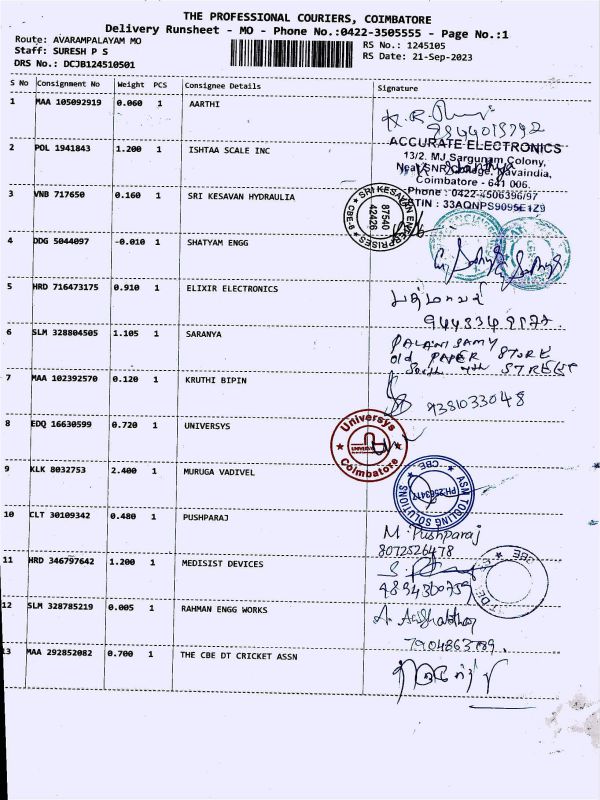 THE PROFESSIONAL COURIERS, COIMBATORE
Delivery Runsheet - MO - Phone No.:0422-3505555 - Page No.:1
Route: AVARAMPALAYAM MO
Staff: SURESH P S
DRS No.: DCJB124510501
RS No.: 1245105
RS Date: 21-Sep-2023
S No Consignment No Weight PCS Consignee Details Signature
1 MAA 105092919 0.060 1 AARTHI
9844013792
2 POL 1941843 1.200 1 ISHTAA SCALE INC
ACCURATE ELECTRONICS
13/2. MJ Sargunam Colony,
Near SNR College, Navaindia,
Coimbatore - 641 006.
Phone : 0422-4506396/97
3 VNB 717650 0.160 1 SRI KESAVAN HYDRAULIA
SRI KESAVAN ENTERPRISES
CBE-6
87540
42426
4 DDG 5044097 -0.010 1 SHATYAM ENGG
5 HRD 716473175 0.910 1 ELIXIR ELECTRONICS
6 SLM 328804505 1.105 1 SARANYA
PALANISAMY
old PAPER STORE
7 MAA 102392570 0.120 1 KRUTHI BIPIN
9381033048
8 EDQ 16630599 0.720 1 UNIVERSYS
Universys
Coimbatore
9 KLK 8032753 2.400 1 MURUGA VADIVEL
ASM TOOLING SOLUTIONS
CBE
10 CLT 30109342 0.480 1 PUSHPARAJ
M. Pushparaj
8072526478
11 HRD 346797642 1.200 1 MEDISIST DEVICES
4894360759
12 SLM 328785219 0.005 1 RAHMAN ENGG WORKS
13 MAA 292852082 0.700 1 THE CBE DT CRICKET ASSN